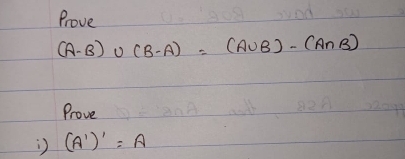 Prove
(A-B) ∪ (B-A) = (A∪B) - (A∩B)
Prove
i) (A')' = A